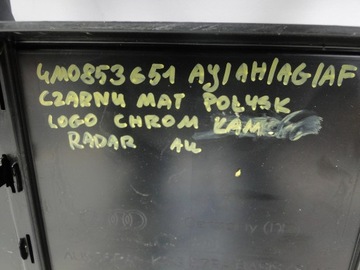 4M0853651 AY/AH/AG/AF
CZARNY MAT POŁYSK
LOGO CHROM KAM.
RADAR